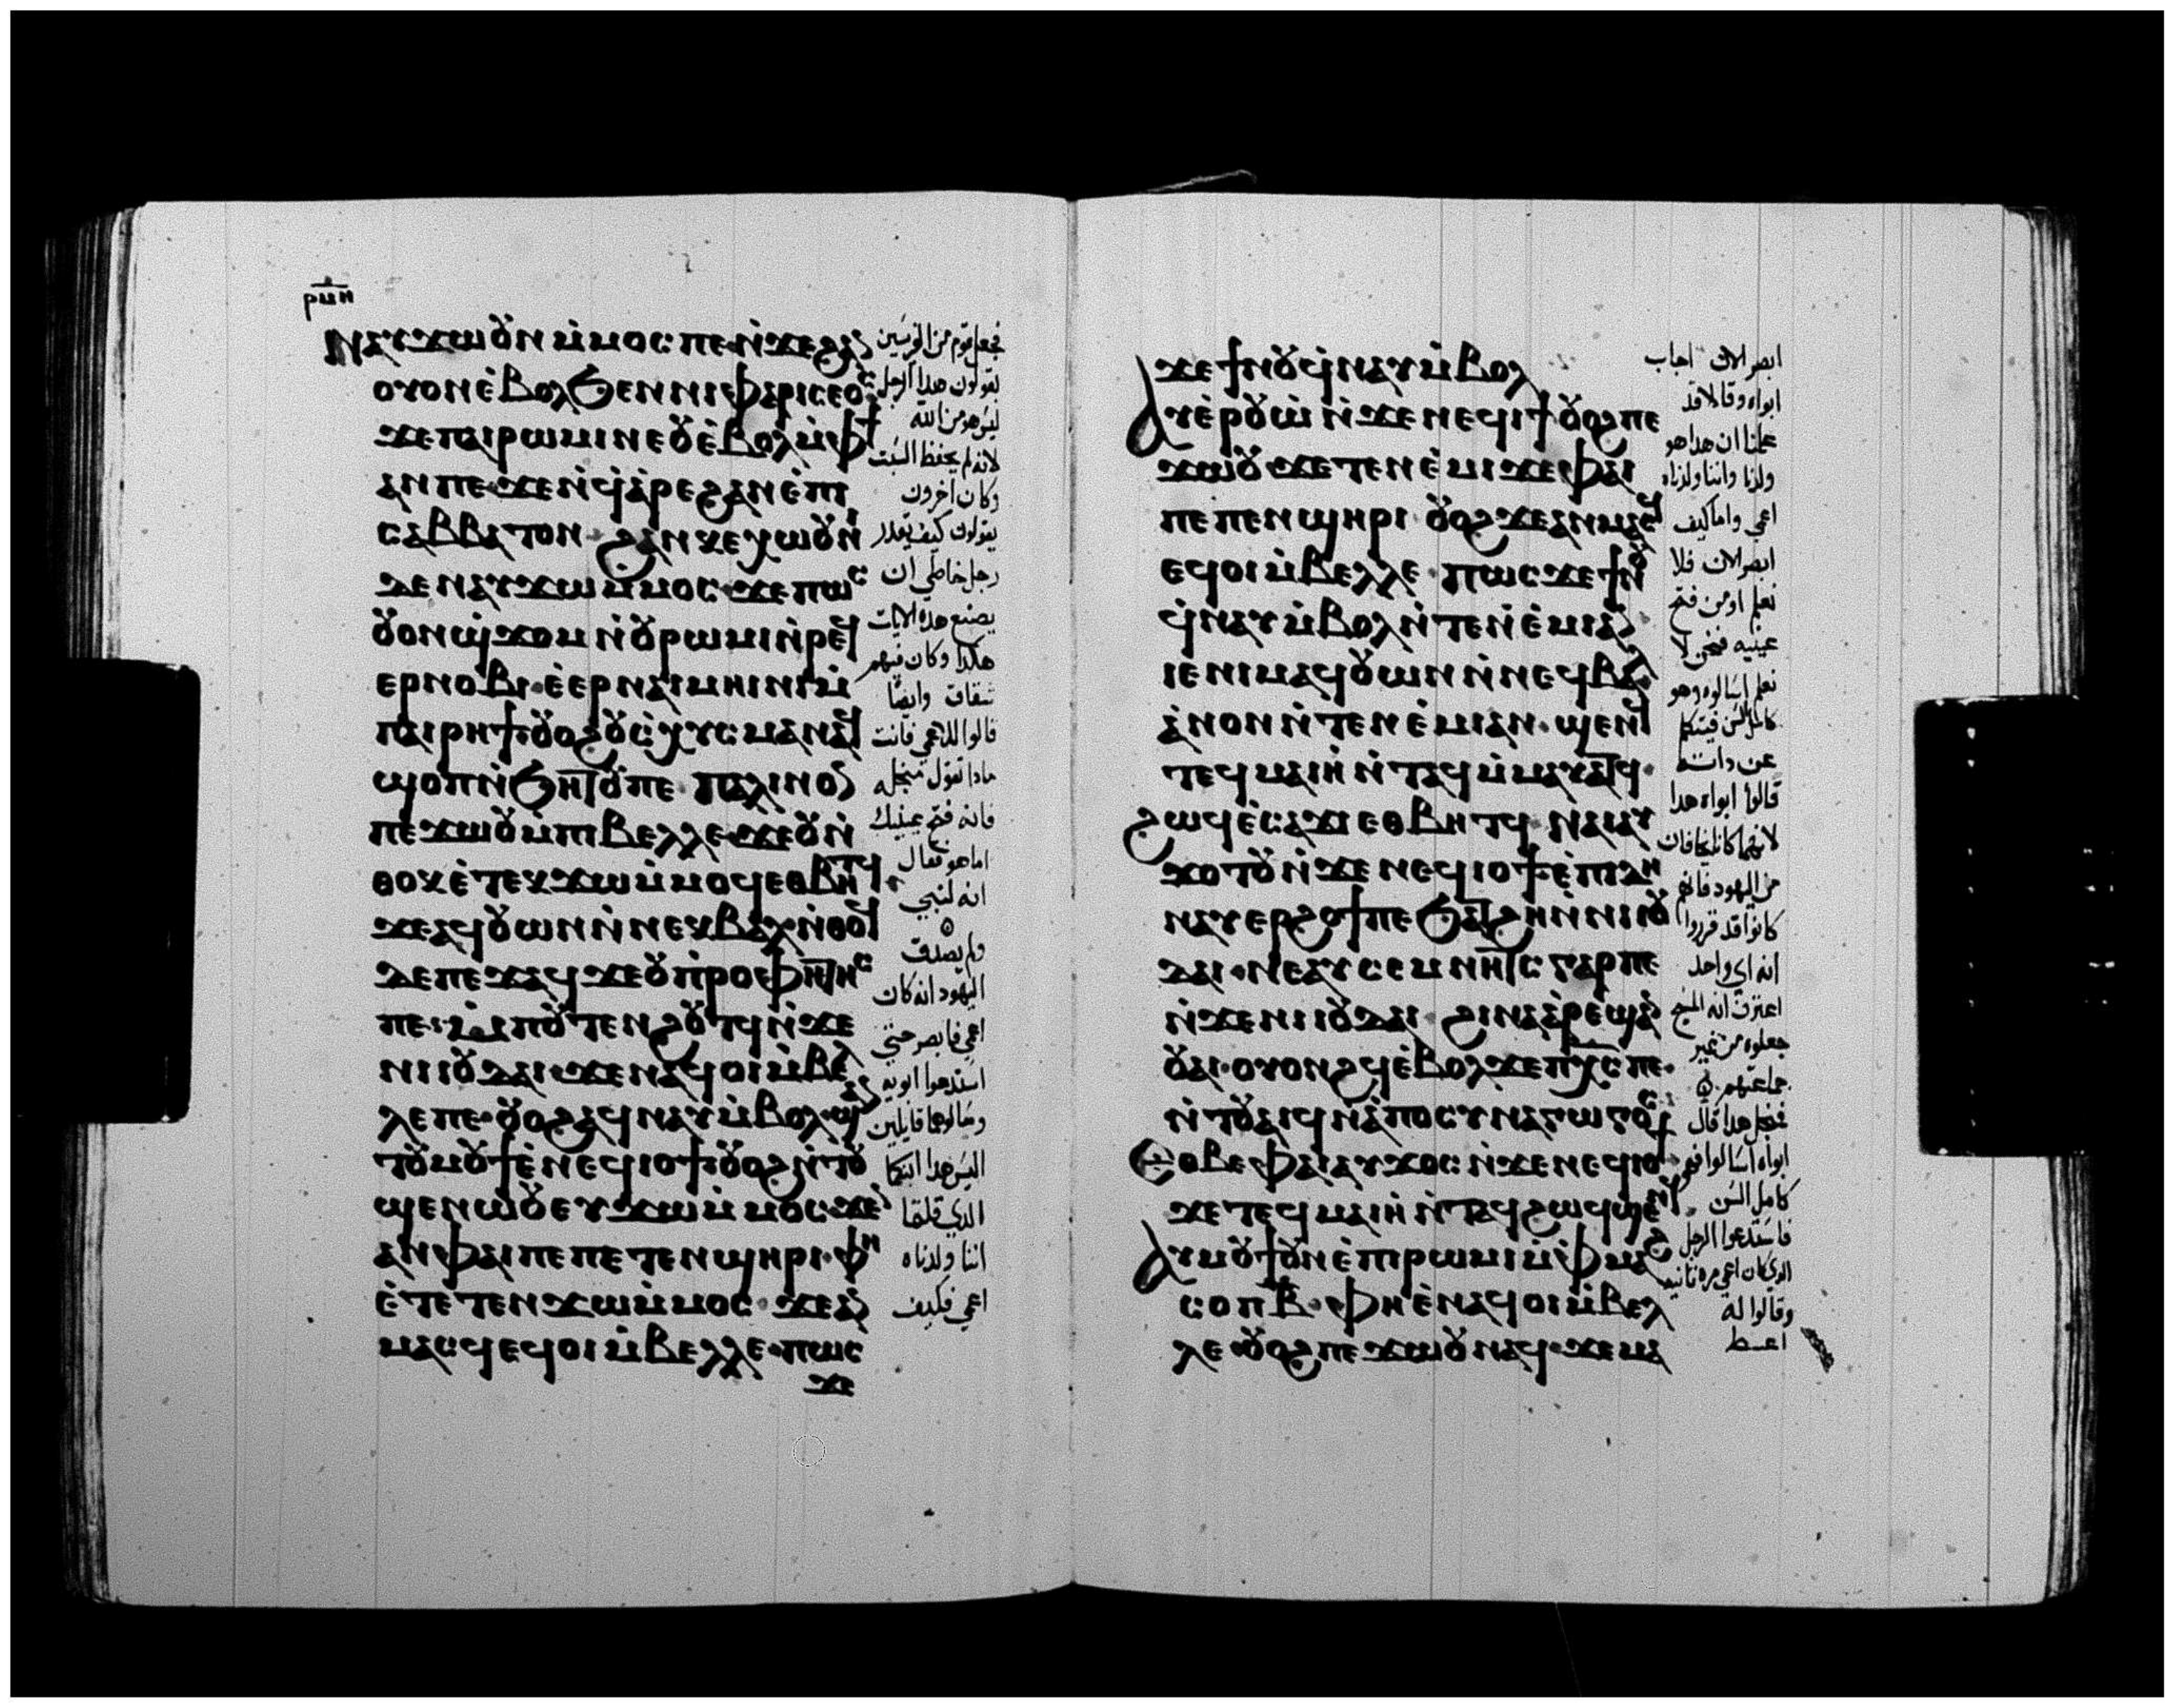 ⲣⲙⲏ
ⲛⲁⲩϫⲱⲟⲩⲛ ⲙ̀ⲙⲟⲥ ⲡⲉ ⲛ̀ϫⲉϩⲁⲛ
ⲟⲩⲟⲛ ⲉ̀ⲃⲟⲗ ϧⲉⲛ ⲛⲓⲫⲁⲣⲓⲥⲉⲟⲥ
ϫⲉ ⲡⲁⲓⲣⲱⲙⲓ ⲛⲉ ⲟⲩ ⲉ̀ⲃⲟⲗ ⲙ̀ⲫϯ
ⲁⲛ ⲡⲉ ϫⲉ ⲛ̀ϥ̀ⲁ̀ⲣⲉϩ ⲁⲛ ⲉ̀ⲡⲓ
ⲥⲁⲃⲃⲁⲧⲟⲛ ϩⲁⲛⲕⲉⲭⲱⲟⲩⲛⲓ̀
ⲇⲉ ⲛⲁⲩϫⲱ ⲙ̀ⲙⲟⲥ ϫⲉ ⲡⲱⲥ
ⲟⲩⲟⲛ ϣ̀ϫⲟⲙ ⲛ̀ⲟⲩⲣⲱⲙⲓ ⲛ̀ⲣⲉϥ
ⲉⲣⲛⲟⲃⲓ ⲉ̀ⲉⲣ ⲛⲁⲓⲙⲏⲓⲛⲓ ⲙ̀
ⲡⲁⲓⲣⲏϯ ⲟⲩⲟϩ ⲟⲩⲥ̀ⲭⲩⲥⲙⲁ ⲛⲁϥ
ϣⲟⲡ ⲛ̀ϧⲏⲧⲟⲩ ⲡⲉ ⲡⲁⲗⲓⲛ ⲟⲛ
ⲡⲉϫⲱⲟⲩ ⲙ̀ⲡⲓⲃⲉⲗⲗⲉ ϫⲉ ⲟⲩ ⲛ̀
ⲑⲟⲕ ⲉ̀ⲧⲉⲕϫⲱ ⲙ̀ⲙⲟϥ ⲉⲑⲃⲏⲧϥ
ϫⲉ ⲁϥⲟⲩⲱⲛ ⲛ̀ⲛⲉⲕⲃⲁⲗ ⲛ̀ⲑⲟϥ
ⲇⲉ ⲡⲉϫⲁϥ ϫⲉ ⲟⲩⲡ̀ⲣⲟⲫⲏⲧⲏⲥ
ⲡⲉ ⲙ̀ⲡⲟⲩⲧⲉⲛϩⲟⲩⲧϥ ⲛ̀ϫⲉ
ⲛⲓⲓⲟⲩⲇⲁⲓ ϫⲉ ⲛⲁϥⲟⲓ ⲙ̀ⲃⲉⲗ
ⲗⲉ ⲡⲉ ⲟⲩⲟϩ ⲁϥⲛⲁⲩ ⲙ̀ⲃⲟⲗ ϣⲁ
ⲧⲟⲩⲙⲟⲩϯ ⲉ̀ⲛⲉϥⲓⲟϯ ⲟⲩⲟϩ ⲛ̀ⲧⲟⲩ
ϣⲉⲛⲱ̀ⲟⲩ ⲉⲩϫⲱ ⲙ̀ⲙⲟⲥ ϫⲉ
ⲁⲛ ⲫⲁⲓ ⲡⲉ ⲡⲉⲧⲉⲛϣⲏⲣⲓ ⲫⲏ
ⲉ̀ⲧⲉⲧⲉⲛϫⲱ ⲙ̀ⲙⲟⲥ ϫⲉ ⲁⲛ
ⲙⲁⲥϥ ⲉϥⲟⲓ ⲙ̀ⲃⲉⲗⲗⲉ ⲡⲱⲥ
ϫⲉ
فجعل قوم من الفريسين
يقولون هدا الرجل
ليس هو من الله
لانه لم يحفظ السبت
وكان اخرون
يقولون كيف يقدر
رجل خاطي ان
يصنع هده الايات
هكدا وكان فيهم
شقاق وايضا
قالوا للاعمي فانت
مادا تقول من اجله
فانه فتح عينيك
اما هو فقال
انه لنبي
ولم يصدق
اليهود انه كان
اعمي فابصر حتي
استدعوا ابويه
وسالوهما قايلين
اليس هدا ابنكما
الدي قلتما
اننا ولدناه
اعمي فكيف
ϫⲉ ϯⲛⲟⲩ ϥ̀ⲛⲁⲩ ⲙ̀ⲃⲟⲗ
ⲁⲩⲉ̀ⲣⲟⲩⲱ̀ ⲛ̀ϫⲉ ⲛⲉϥⲓⲟϯ ⲟⲩⲟϩ ⲡⲉ
ϫⲱⲟⲩ ϫⲉ ⲧⲉⲛⲉ̀ⲙⲓ ϫⲉ ⲫⲁⲓ
ⲡⲉ ⲡⲉⲛϣⲏⲣⲓ ⲟⲩⲟϩ ϫⲉ ⲁⲛⲙⲁⲥϥ
ⲉϥⲟⲓ ⲙ̀ⲃⲉⲗⲗⲉ ⲡⲱⲥ ϫⲉ ϯⲛⲟⲩ
ϥ̀ⲛⲁⲩ ⲙ̀ⲃⲟⲗ ⲛ̀ⲧⲉⲛⲉ̀ⲙⲓ ⲁⲛ
ⲓⲉ ⲛⲓⲙ ⲁϥⲟⲩⲱⲛ ⲛ̀ⲛⲉϥⲃⲁⲗ
ⲁ̀ⲛⲟⲛ ⲛ̀ⲧⲉⲛⲉ̀ⲙⲓ ⲁⲛ ϣⲉⲛϥ
ⲧⲉϥⲙⲁⲓⲏ̀ ⲛ̀ⲧⲁϥ ⲙ̀ⲙⲁⲩⲁⲧϥ
ϩⲱϥ ⲉ̀ⲥⲁϫⲓ ⲉⲑⲃⲏⲧϥ ⲛⲁⲓ ⲁⲩ
ϫⲟⲧⲟⲩ ⲛ̀ϫⲉ ⲛⲉϥⲓⲟϯ ⲉ̀ⲡⲓⲇⲏ
ⲛⲁⲩⲉⲣϩⲟϯ ⲡⲉ ϧⲁⲧϩⲏ ⲛ̀ⲛⲓⲓⲟⲩ
ⲇⲁⲓ ⲛⲉⲁⲩⲥⲉⲙⲛⲏⲧⲥ ⲅⲁⲣ ⲡⲉ
ⲛ̀ϫⲉ ⲛⲓⲓⲟⲩⲇⲁⲓ ϩⲓⲛⲁ ⲁⲣⲉ̀ϣⲁⲛ
ⲟⲩⲁⲓ ⲟⲩⲟⲛϩϥ ⲉ̀ⲃⲟⲗ ϫⲉ ⲡⲭⲥ ⲡⲉ
ⲛ̀ⲧⲟⲩⲁⲓϥ ⲛ̀ⲁ̀ⲡⲟⲥⲩⲛⲁⲅⲱⲅⲟⲥ
ⲉⲑⲃⲉ ⲫⲁⲓ ⲁⲩϫⲟⲥ ⲛ̀ϫⲉ ⲛⲉϥⲓⲟϯ
ϫⲉ ⲧⲉϥⲙⲁⲓⲏ̀ ⲛ̀ⲧⲁϥ ϩⲱϥ ϣⲉⲛϥ
ⲁⲩⲙⲟⲩϯ ⲟⲩⲛ ⲉ̀ⲡⲓⲣⲱⲙⲓ ⲙ̀ⲫⲙⲁϩ
ⲥⲟⲡ ⲃ̅ ⲫⲏ ⲉ̀ⲛⲁϥⲟⲓ ⲙ̀ⲃⲉⲗ
ⲗⲉ ⲟⲩⲟϩ ⲡⲉϫⲱⲟⲩ ⲛⲁϥ ϫⲉ ⲙⲁ
ابصر الان اجاب
ابواه وقالا قد
علمنا ان هدا هو
ولدنا واننا ولدناه
اعمي واما كيف
ابصر الان فلا
نعلم او من فتح
عينيه فنحن لا
نعلم اسالوه وهو
كامل السن فيتكلم
عن داته
قالوا ابواه هدا
لانهما كانا يخافان
من اليهود فانهم
كانوا قد قرروا
انه اي واحد
اعترف انه المسيح
جعلوه من غير
جماعتهم
فمن اجل هدا قال
ابواه اسالوا فهو
كامل السن
فاستدعوا الرجل
الدي كان اعمي مره تانيه
وقالوا له
اعط